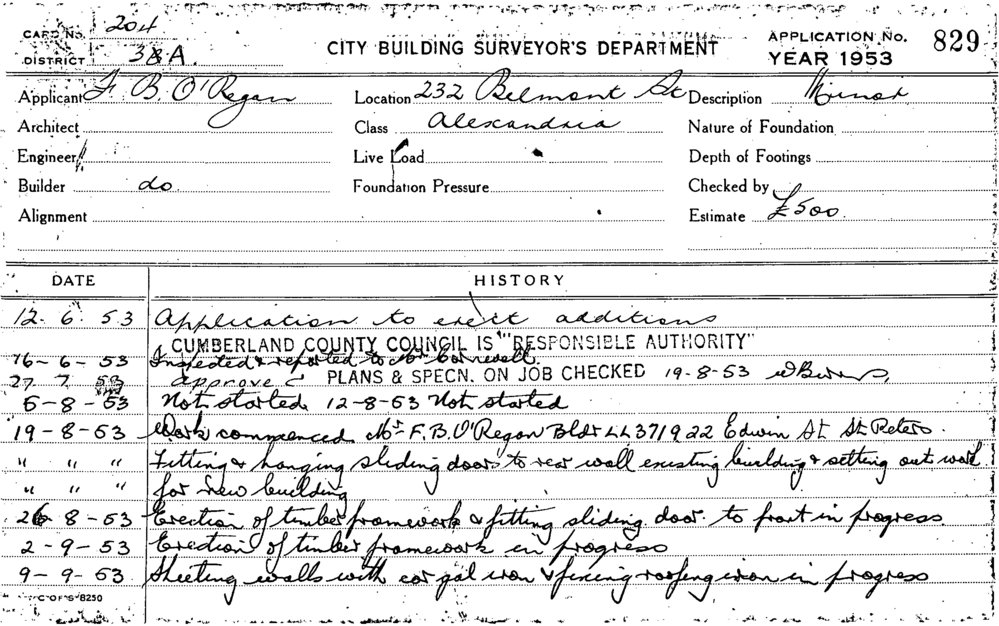 CARD No. 204
DISTRICT 3&A.
CITY BUILDING SURVEYOR'S DEPARTMENT
APPLICATION No. 829
YEAR 1953
Applicant F. B. O'Regan Location 232 Belmont St Description Minor
Architect Class Alexandria Nature of Foundation
Engineer Live Load Depth of Footings
Builder do Foundation Pressure Checked by
Alignment Estimate £500.
DATE HISTORY
12. 6. 53 Application to erect additions
CUMBERLAND COUNTY COUNCIL IS "RESPONSIBLE AUTHORITY"
16-6-53 Inspected & reported to Mr Cornwell.
27. 7. 53 approved PLANS & SPECN. ON JOB CHECKED 19-8-53
5-8-53 Not started 12-8-53 Not started
19-8-53 Work commenced Mr F. B. O'Regan Bldr LL3719 22 Edwin St St Peters.
" " " Fitting & hanging sliding doors to rear wall existing building & setting out work
" " " for new building
26 8-53 Erection of timber framework & fitting sliding door to front in progress.
2-9-53 Erection of timber framework in progress
9-9-53 Sheeting walls with cor gal iron & fixing roofing iron in progress
C OF S 8250